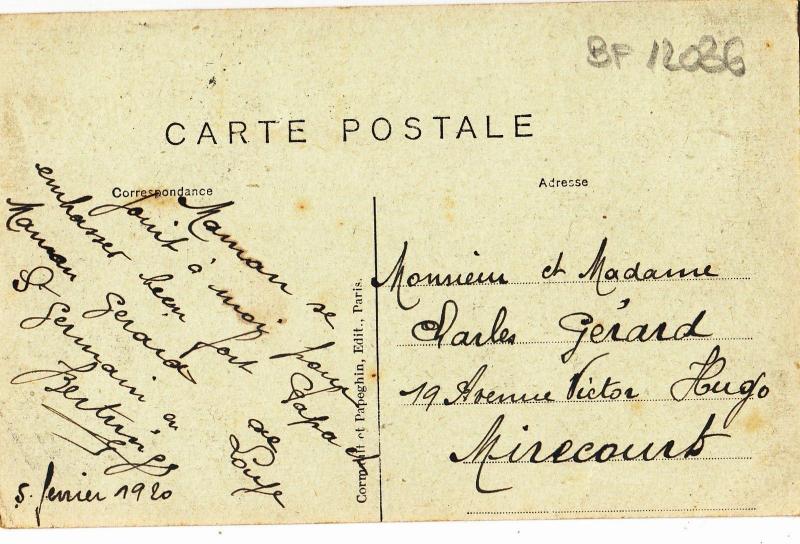 BF 12036
CARTE POSTALE
Correspondance
Adresse
Maman se
joint à moi pour
embrasser bien fort Papa et
Maman Gérard de
St Germain en
5 février 1920
Cormault et Papeghin, Edit., Paris.
Monsieur et Madame
Charles Gérard
19 Avenue Victor Hugo
Mirecourt